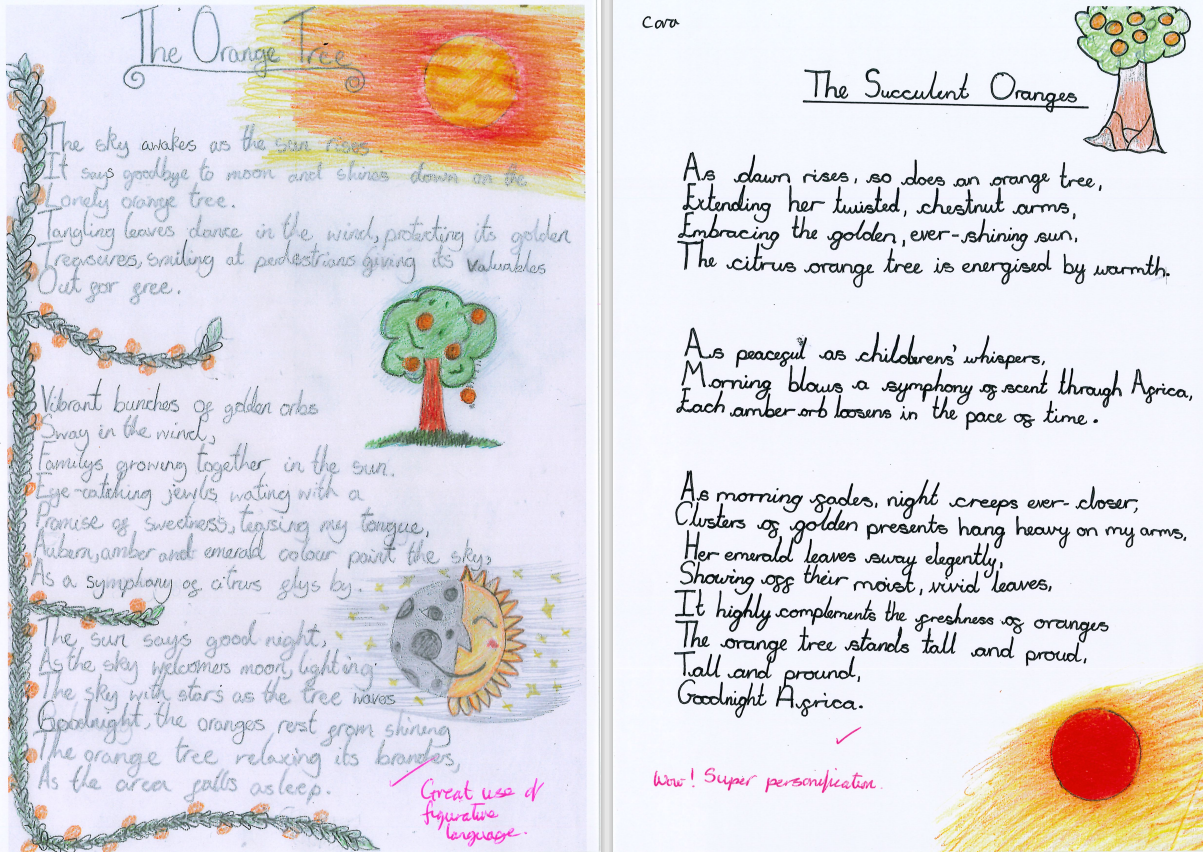 The Orange Tree
The sky awakes as the sun rises.
It says goodbye to moon and shines down on the
Lonely orange tree.
Tangling leaves dance in the wind, protecting its golden
Treasures, smiling at pedestrians giving its valuables
Out for free.
Vibrant bunches of golden orbs
Sway in the wind,
Familys growing together in the sun.
Eye-catching jewls wating with a
Promise of sweetness, teasing my tongue,
Auburn, amber and emerald colour paint the sky,
As a symphony of citrus flys by.
The sun says good night,
As the sky welcomes moon, lighting
The sky with stars as the tree waves
Goodnight, the oranges rest from shining
The orange tree relaxing its
As the area falls asleep.
Great use of
figurative
language.
Cora
The Succulent Oranges
As dawn rises, so does an orange tree,
Extending her twisted, chestnut arms,
Embracing the golden, ever-shining sun,
The citrus orange tree is energised by warmth.
As peaceful as childerens' whispers,
Morning blows a symphony of scent through Africa,
Each amber orb loosens in the pace of time.
As morning fades, night creeps ever-closer,
Clusters of golden presents hang heavy on my arms,
Her emerald leaves sway elegently,
Showing off their moist, vivid leaves,
It highly complements the freshness of oranges
The orange tree stands tall and proud,
Tall and pround,
Goodnight Africa.
Wow! Super personification.